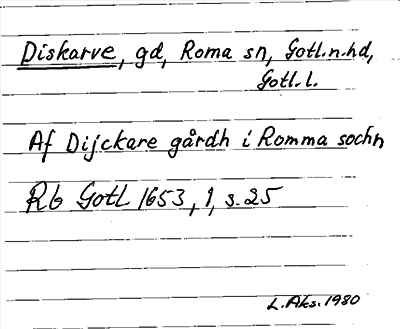 Diskarve, gd, Roma sn, Gotl.n.hd,
Gotl.l.
Af Dijckare gårdh i Romma sochn
Rb Gotl 1653, 1, s.25
L.Aks.1980